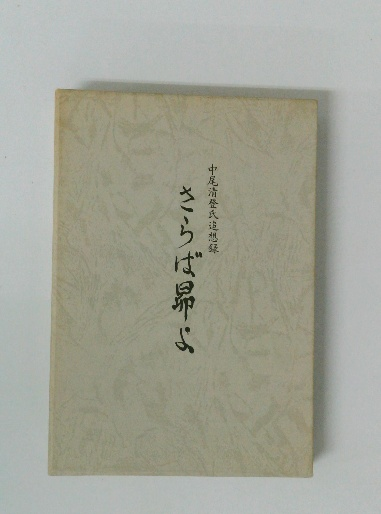 中尾清登氏追想録
さらば昴よ